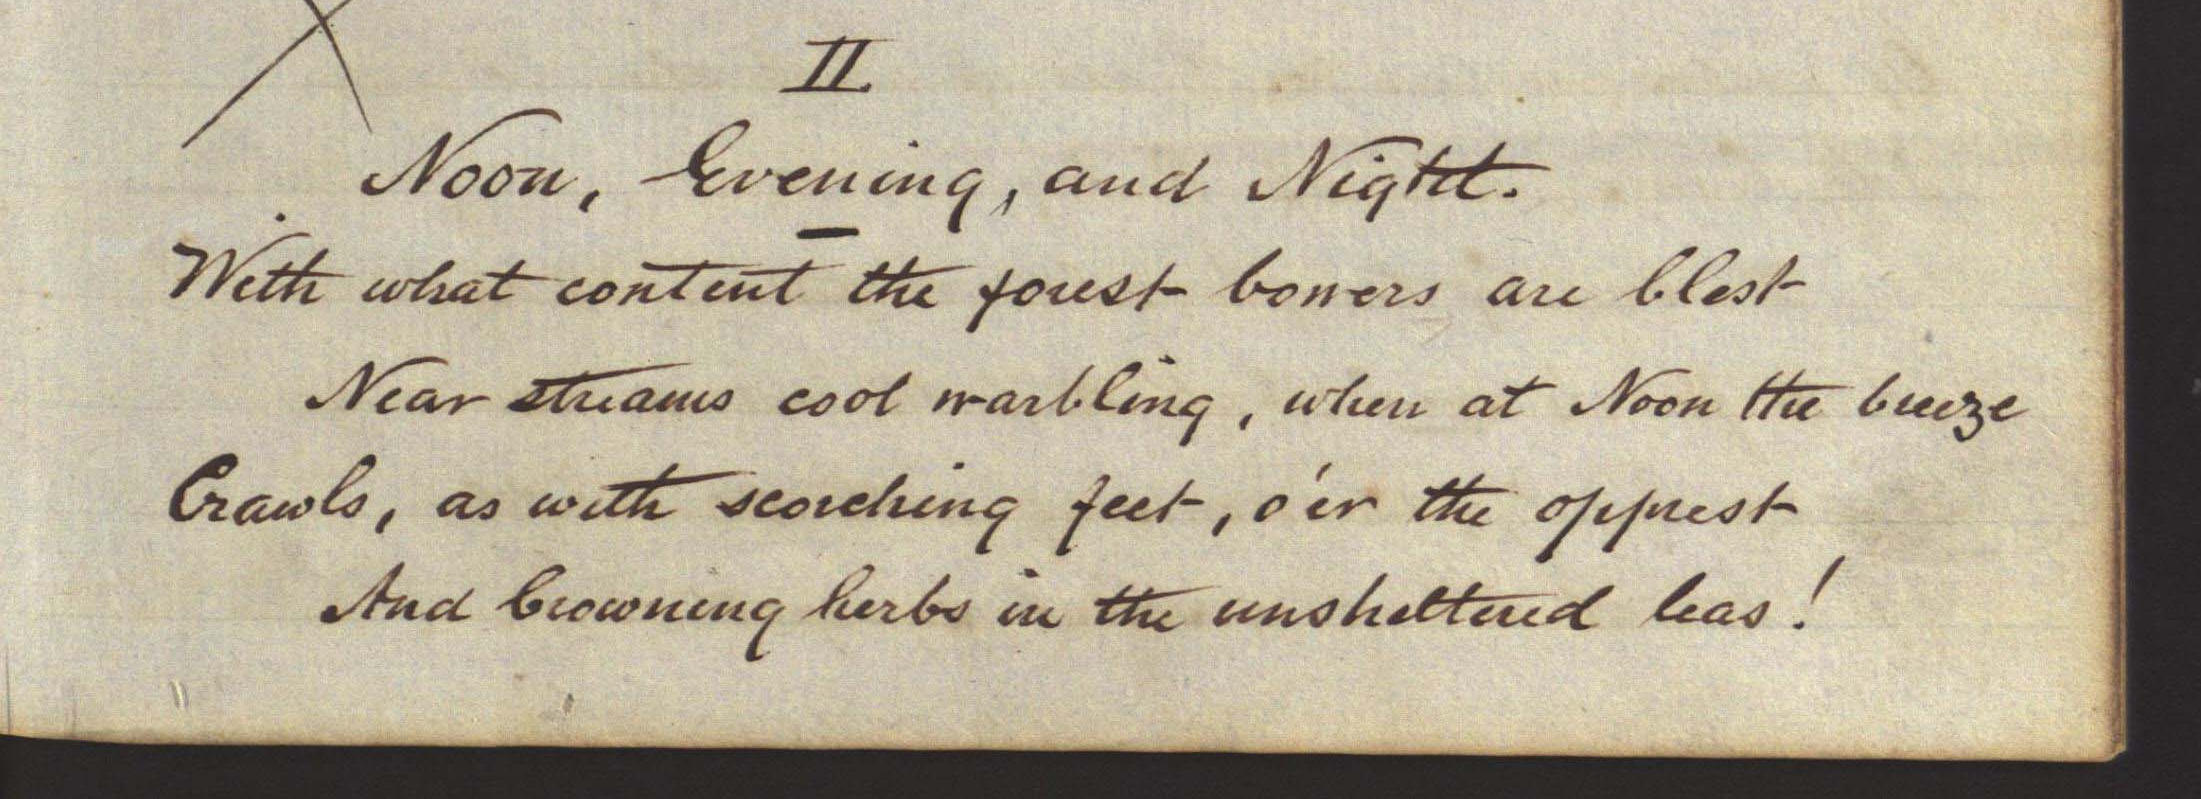 II
Noon, Evening, and Night.
With what content the forest bowers are blest
Near streams cool warbling, when at Noon the breeze
Crawls, as with scorching feet, o'er the opprest
And browning herbs in the unsheltered leas!